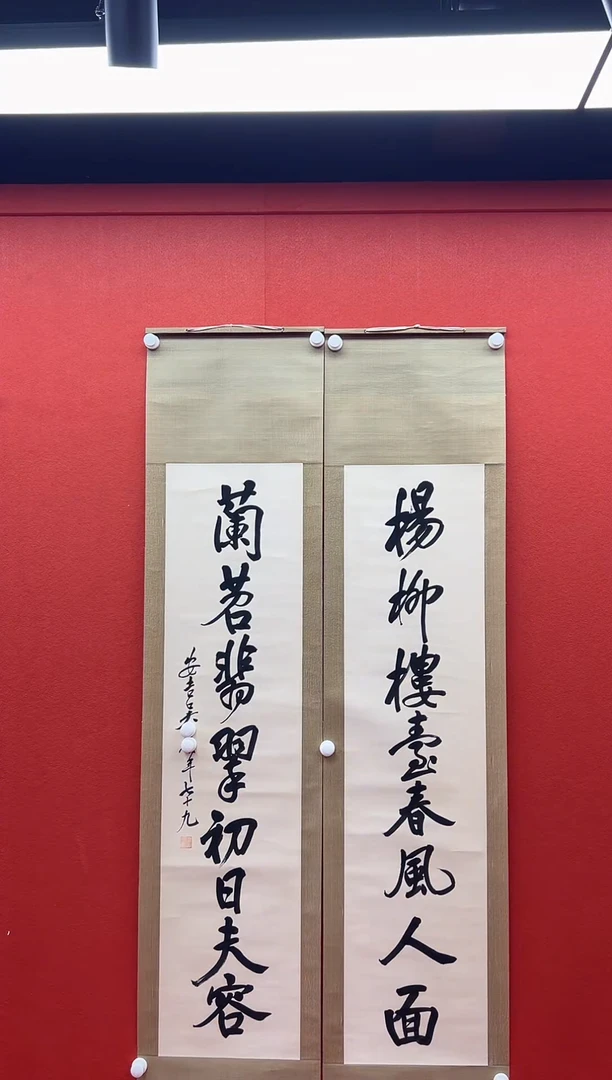 楊柳樓臺春風人面
蘭苕翡翠初日夫容
安吉吳年七十九